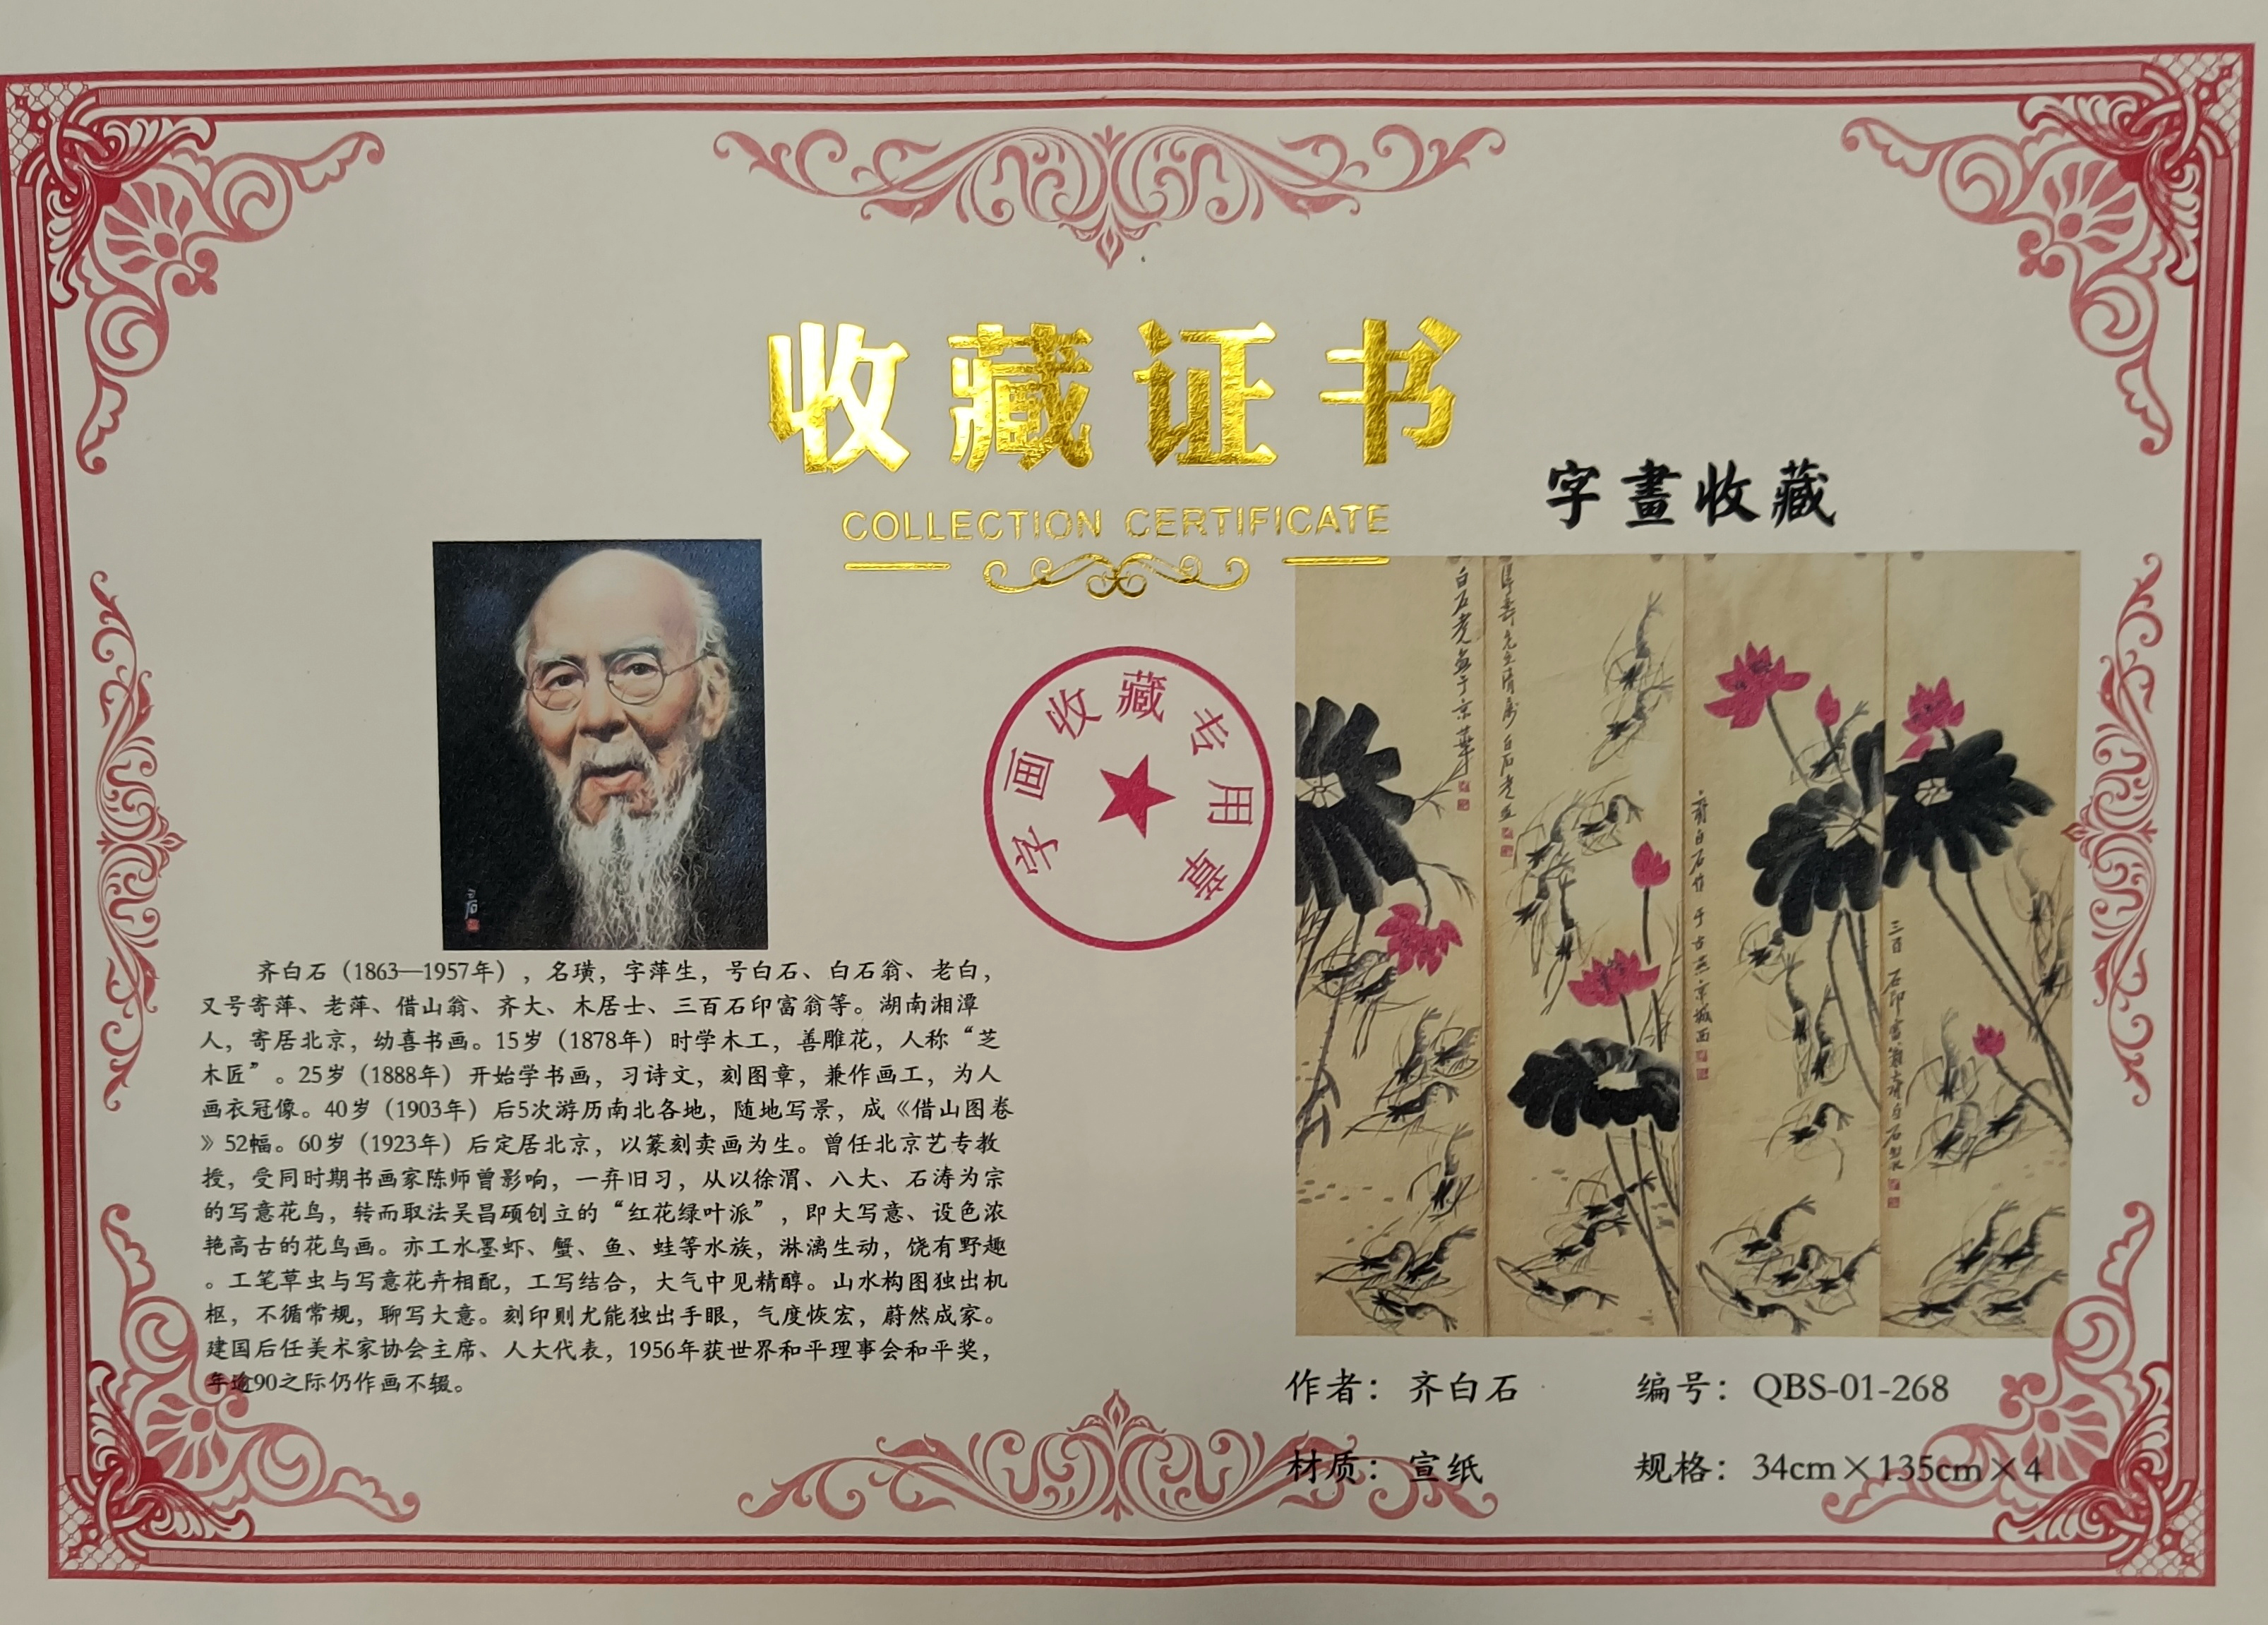 收藏证书
COLLECTION CERTIFICATE
字畫收藏
字画收藏专用章
齐白石（1863—1957年），名璜，字萍生，号白石、白石翁、老白，
又号寄萍、老萍、借山翁、齐大、木居士、三百石印富翁等。湖南湘潭
人，寄居北京，幼喜书画。15岁（1878年）时学木工，善雕花，人称“芝
木匠”。25岁（1888年）开始学书画，习诗文，刻图章，兼作画工，为人
画衣冠像。40岁（1903年）后5次游历南北各地，随地写景，成《借山图卷
》52幅。60岁（1923年）后定居北京，以篆刻卖画为生。曾任北京艺专教
授，受同时期书画家陈师曾影响，一弃旧习，从以徐渭、八大、石涛为宗
的写意花鸟，转而取法吴昌硕创立的“红花绿叶派”，即大写意、设色浓
艳高古的花鸟画。亦工水墨虾、蟹、鱼、蛙等水族，淋漓生动，饶有野趣
。工笔草虫与写意花卉相配，工写结合，大气中见精醇。山水构图独出机
枢，不循常规，聊写大意。刻印则尤能独出手眼，气度恢宏，蔚然成家。
建国后任美术家协会主席、人大代表，1956年获世界和平理事会和平奖，
年逾90之际仍作画不辍。
白石
白石老
于京华
先生清
白石老
齐白石作于古燕京城西
三百石印富翁齐白石
作者：齐白石
编号：QBS-01-268
材质：宣纸
规格：34cm×135cm×4